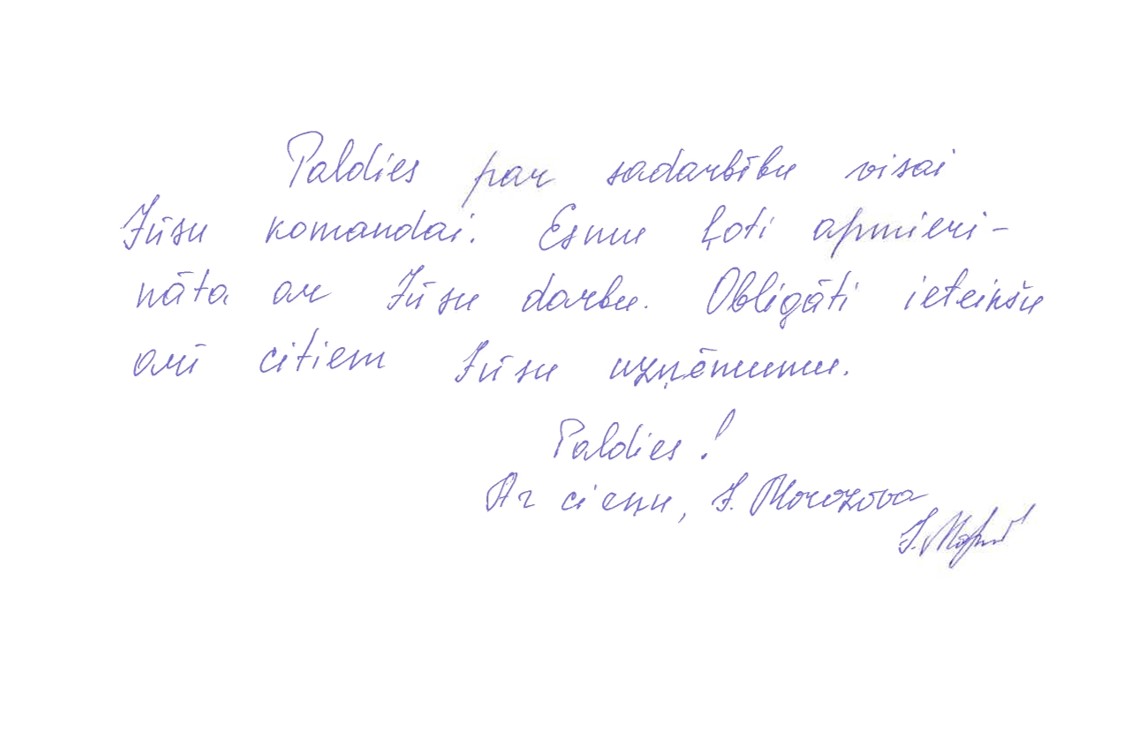 Paldies par sadarbību visai
Jūsu komandai. Esmu ļoti apmieri-
nāta ar Jūsu darbu. Obligāti ieteikšu
arī citiem Jūsu uzņēmumu.
Paldies!
Ar cieņu, J. Morozova